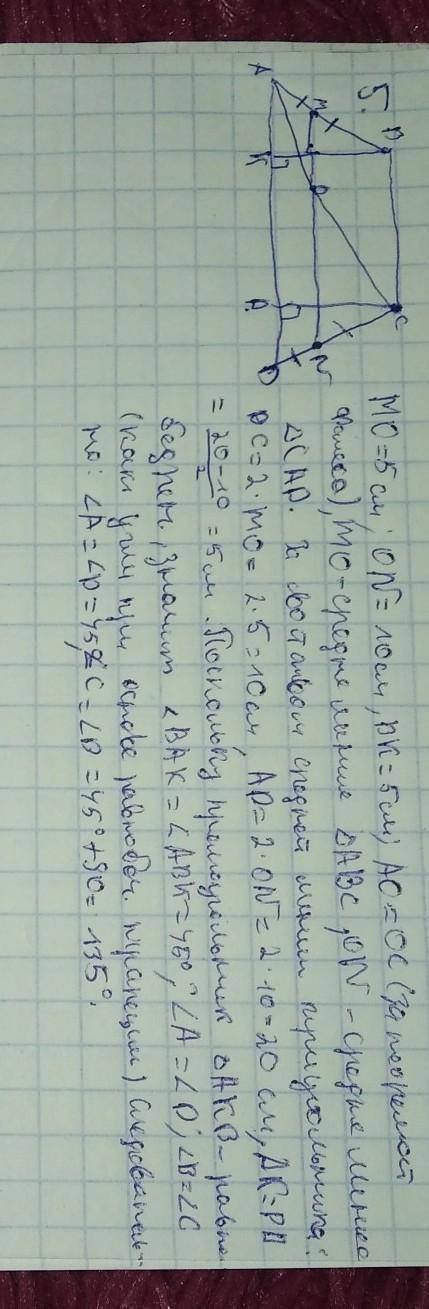 5.
A M B K O P C N D
MO=5 см; ON=10см, BK=5см; AO=OC (за теоремой
Фалеса), MO-средня линия ΔABC, ON-средня линия
ΔCAD. За свойством средней линии треугольника:
BC=2·MO=2·5=10см, AD=2·ON=2·10=20 см, AK=PD
=20-10/2=5см. Поскольку прямоугольник ΔAKB-равно-
бедрен, значит ∠BAK=∠ABK=45°; ∠A=∠D; ∠B=∠C
(как углы при основе равнобоч. трапеции) следователь-
но: ∠A=∠D=45°, ∠C=∠B=45°+90=135°.